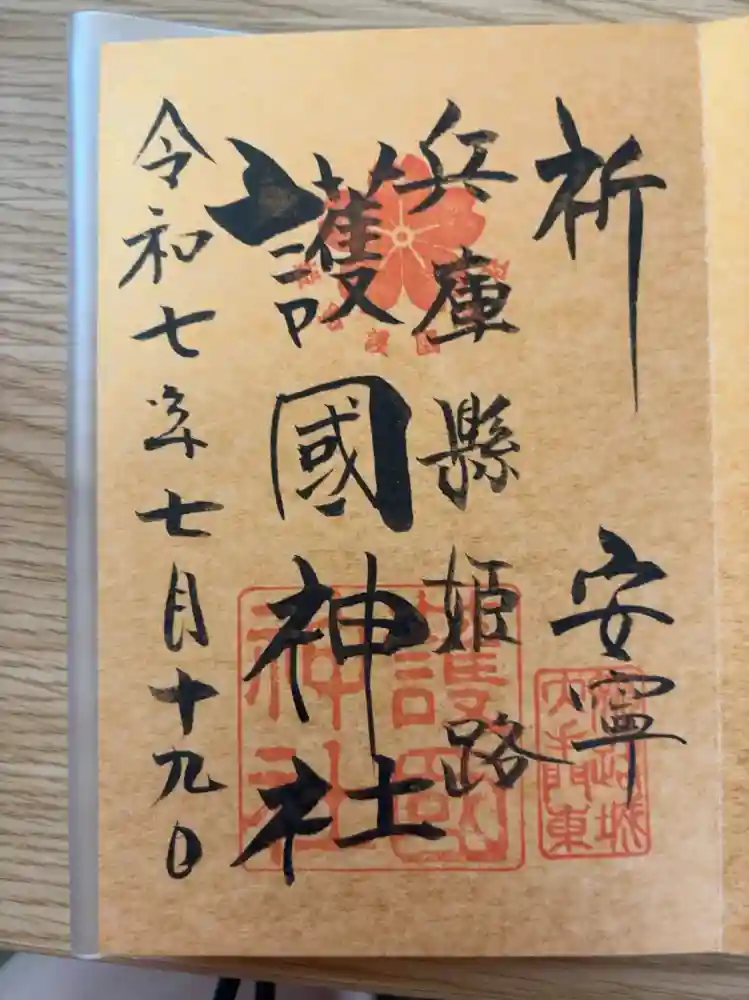 祈 安寧
兵庫縣姫路
護國神社
令和七年七月十九日
護國
神社